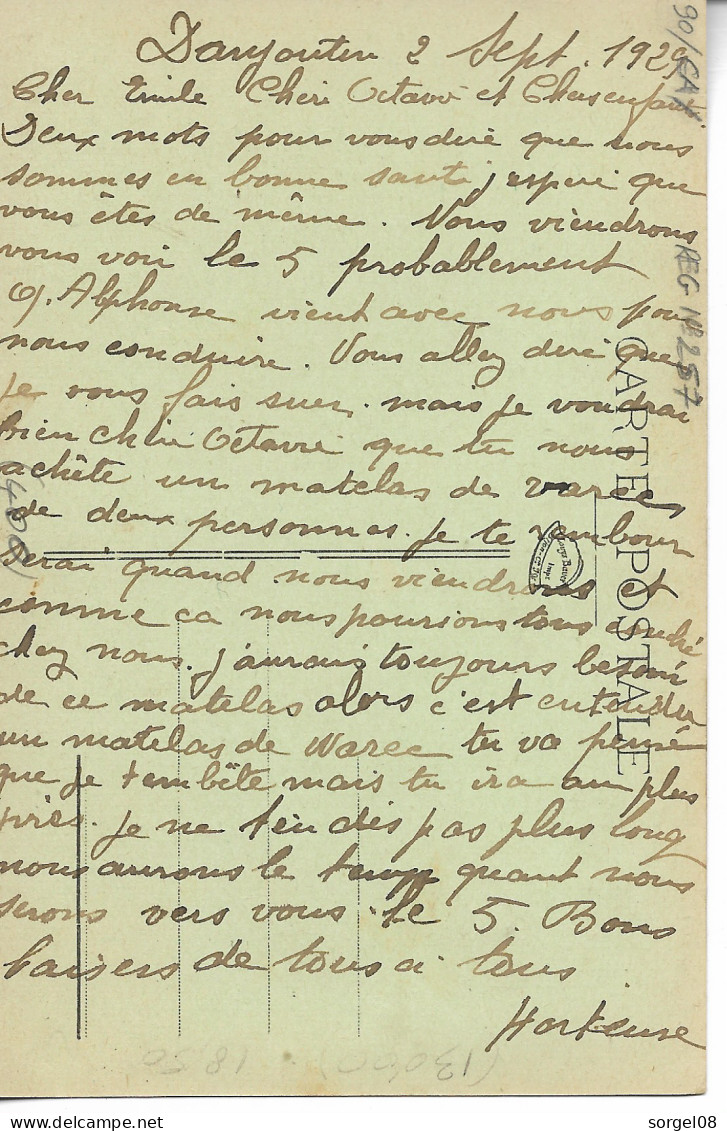 Danjoutin 2 Sept. 1929
Cher Emile Chère Octavie et Chers enfants
Deux mots pour vous dire que nous
sommes en bonne santé j'espère que
vous êtes de même. Nous viendrons
vous voir le 5 probablement
Alphonse vient avec nous pour
nous conduire. Vous allez dire que
je vous fais suer. mais je voudrai
bien Chère Octavie que tu nous
achète un matelas de varec
de deux personnes. je te rembour
serai quand nous viendrons et
comme ça nous pourions tous couché
chez nous. j'aurais toujours besoin
de ce matelas alors c'est entendu
un matelas de Warec tu va pensé
que je t'embête mais tu ira au plus
près. je ne t'en dis pas plus long
nous aurons le temp quant nous
serons vers vous. le 5. Bons
baisers de tous a tous
Hortense
CARTE POSTALE
90/CAX
REG N° 257
(400)
(13000) 18,50
sorgel08